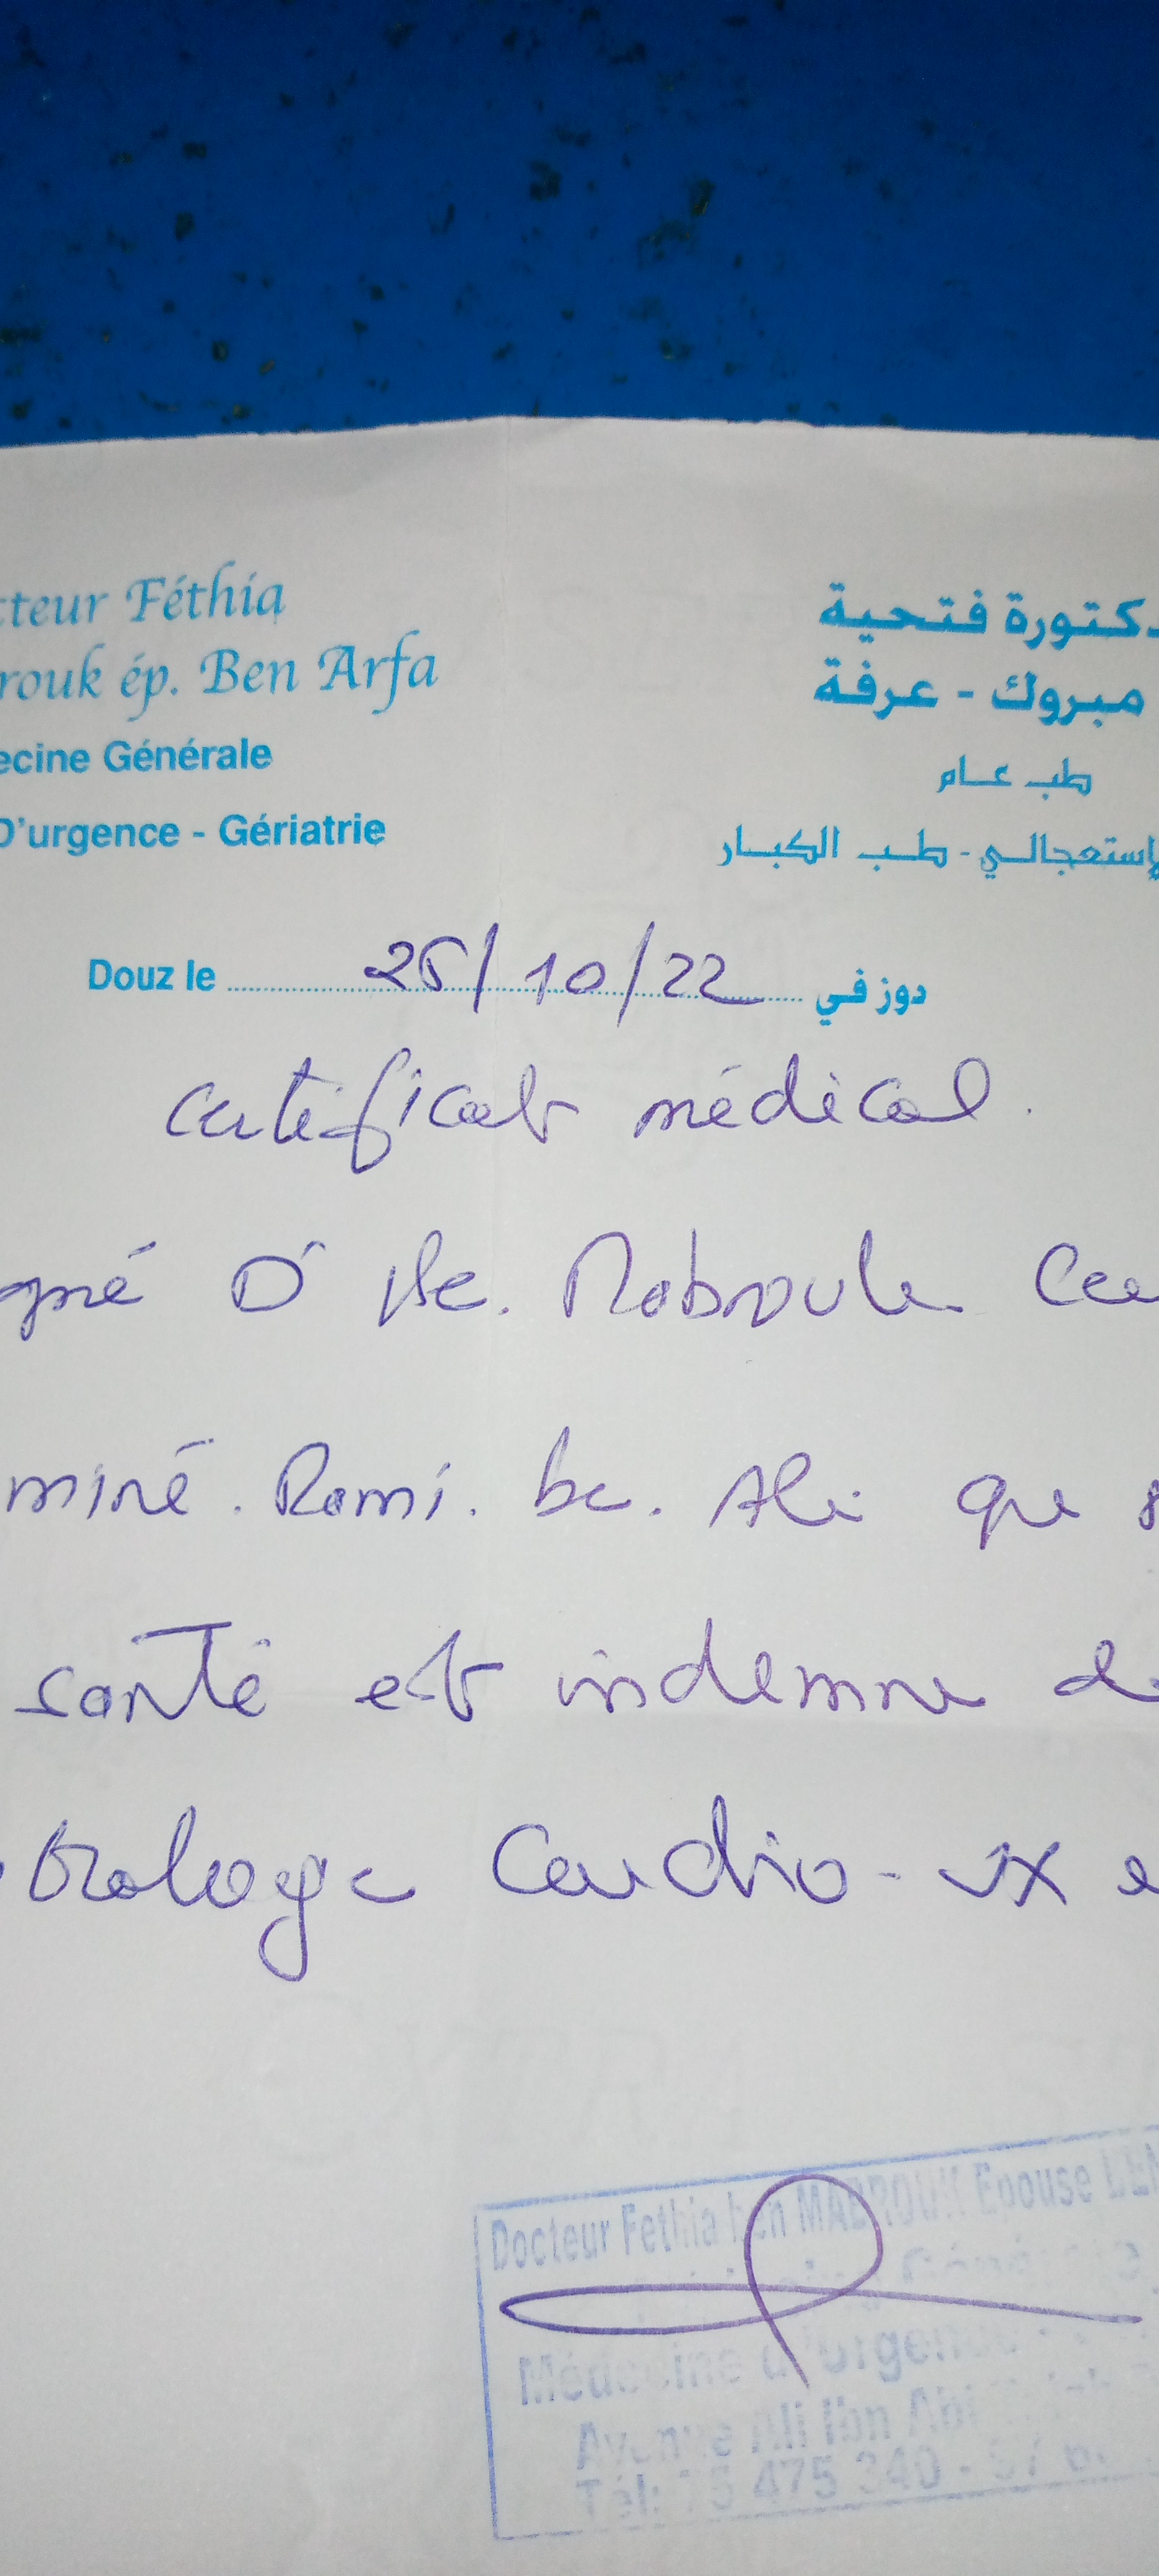 cteur Féthia
دكتورة فتحية
rouk ép. Ben Arfa
مبروك - عرفة
ecine Générale
طب عام
D'urgence - Gériatrie
الإستعجالي - طب الكبار
Douz le 25/10/22 دوز في
certificat médical.
gné Dr Mabrouk
miné. Rami. be. Ali que
santé est indemne de
thologie cardio-vx
Docteur Fethia Ben MABROUK Epouse
Médecine d'Urgence
Avenue Ali Ibn Abi
Tél: 75 475 340